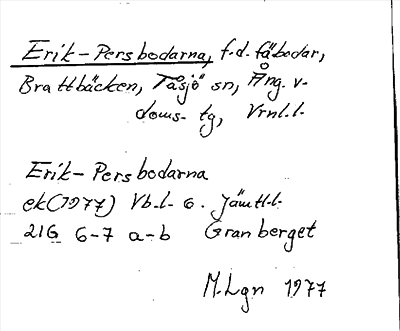 Erik-Persbodarna, f.d. fäbodar,
Brattbäcken, Tåsjö sn, Ång. v-
doms- tg, Vrnl.l.
Erik-Persbodarna
ek(1977) Vb.l- o. Jämtl.l-
21G 6-7 a-b Granberget
M.Lgn 1977